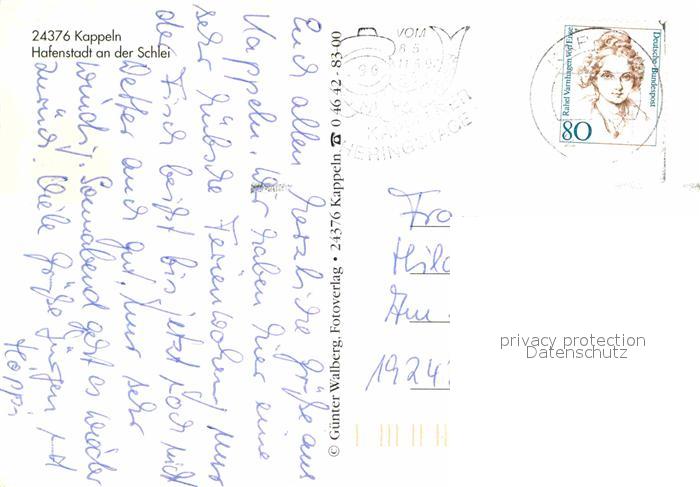 24376 Kappeln
Hafenstadt an der Schlei
Euch allen herzliche Grüße aus
Kappeln. Wir haben hier eine
sehr hübsche Ferienwohnung nur
der Fisch beißt bis jetzt noch nicht
Wetter auch gut, nur sehr
windig. Sonnabend geht es wieder
zurück. Viele Grüße Jürgen
© Günter Walberg, Fotoverlag • 24376 Kappeln ☎ 0 46 42 - 83 00
VOM
HERINGSTAGE
Rahel Varnhagen von Ense
Deutsche Bundespost
80
Fra
Hild
Am
1924
privacy protection
Datenschutz